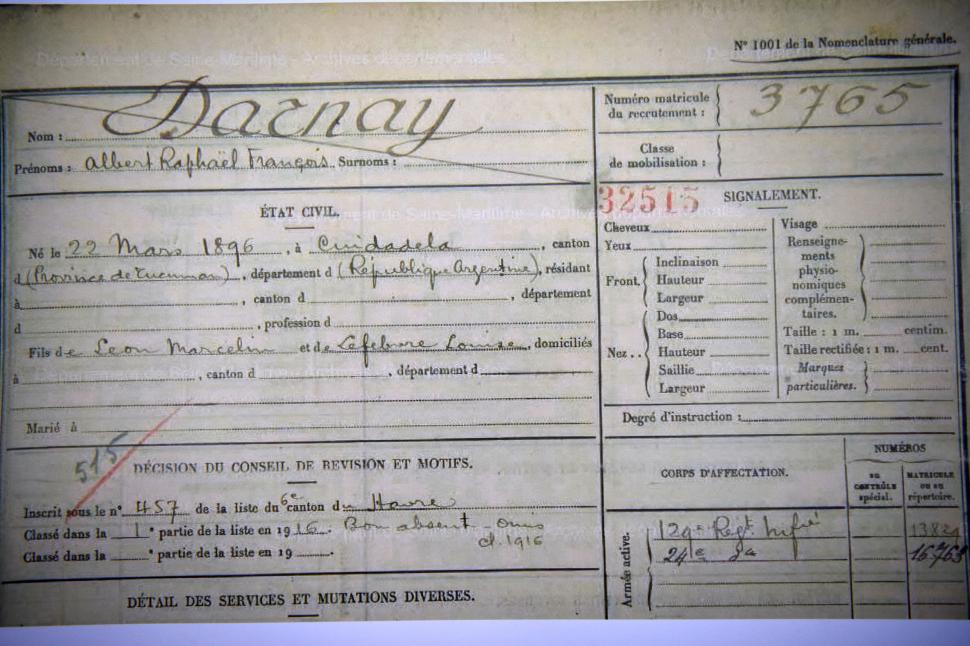 N° 1001 de la Nomenclature générale.
Département de Seine-Maritime - Archives départementales
Nom : Darnay
Prénoms : Albert Raphaël François Surnoms :
Numéro matricule du recrutement : 3765
Classe de mobilisation :
ÉTAT CIVIL.
Né le 22 Mars 1896, à Cuidadela, canton
d (Province de Tucuman), département d (République Argentine), résidant
à , canton d , département
d , profession d
Fils de Leon Marcelin et de Lefebvre Louise, domiciliés
à , canton d , département d
Marié à
32515
SIGNALEMENT.
Cheveux
Yeux
Front. Inclinaison
Hauteur
Largeur
Nez.. Dos
Base
Hauteur
Saillie
Largeur
Visage
Renseigne-
ments
physio-
nomiques
complémen-
taires.
Taille : 1 m. centim.
Taille rectifiée : 1 m. cent.
Marques
particulières.
Degré d'instruction :
515
DÉCISION DU CONSEIL DE REVISION ET MOTIFS.
Inscrit sous le n° 457 de la liste du 6e canton du Havre
Classé dans la 1° partie de la liste en 1916. Bon absent - omis
cl. 1916
Classé dans la ° partie de la liste en 19 .
DÉTAIL DES SERVICES ET MUTATIONS DIVERSES.
CORPS D'AFFECTATION.
NUMÉROS
AU CONTRÔLE spécial.
MATRICULE OU AU répertoire.
Armée active.
129e Régt Infie
24e do 16763